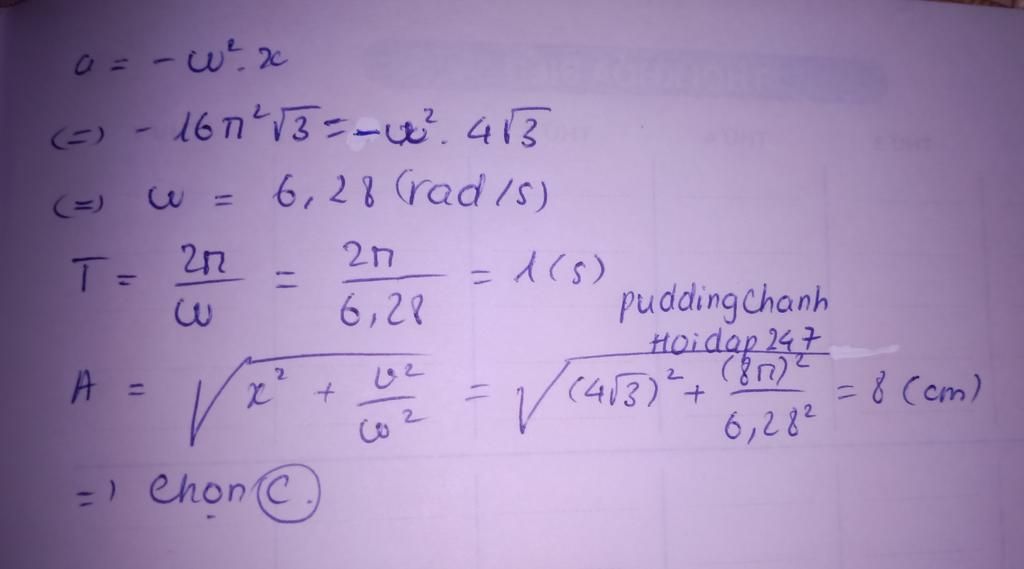 a = -ω². x
(=) -16π²√3 = -ω². 4√3
(=) ω = 6,28 (rad/s)
T = 2π/ω = 2π/6,28 = 1(s)
puddingchanh
Hoidap247
A = √(x² + v²/ω²) = √((4√3)² + (8π)²/6,28²) = 8 (cm)
=) Chọn C.